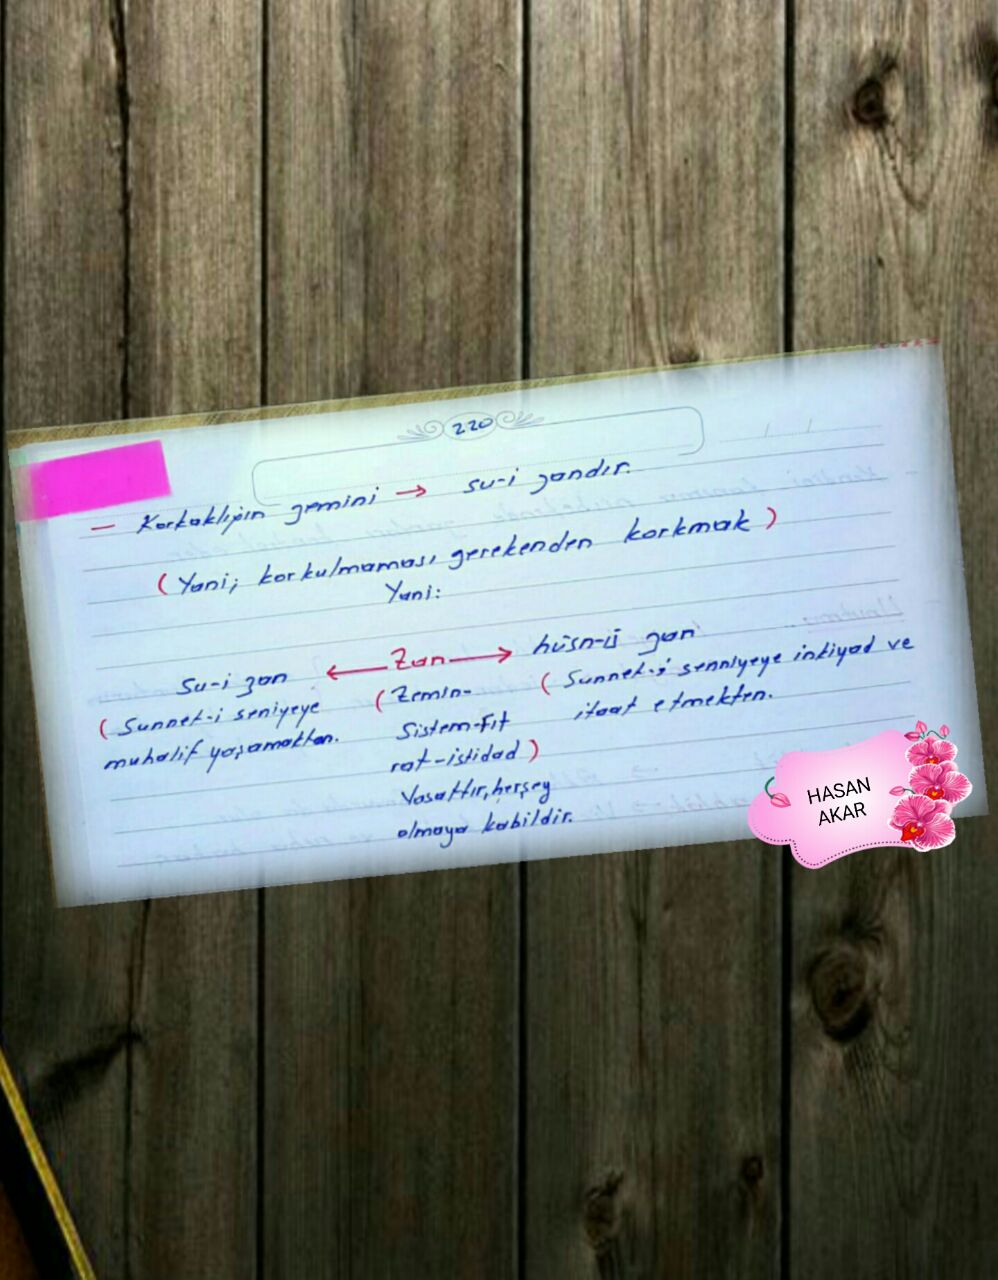 220
— Korkaklığın zemini → su-i zandır.
(Yani; korkulmaması gerekenden korkmak)
Yani:
Su-i zan ← Zan → hüsn-ü zan
(Sunnet-i seniyeye
muhalif yaşamaktan.
(Zemin-
Sistem-Fıt
rat-istidad)
Vasattır, herşey
olmaya kabildir.
(Sunnet-i senniyeye inkiyad ve
itaat etmekten.
HASAN
AKAR